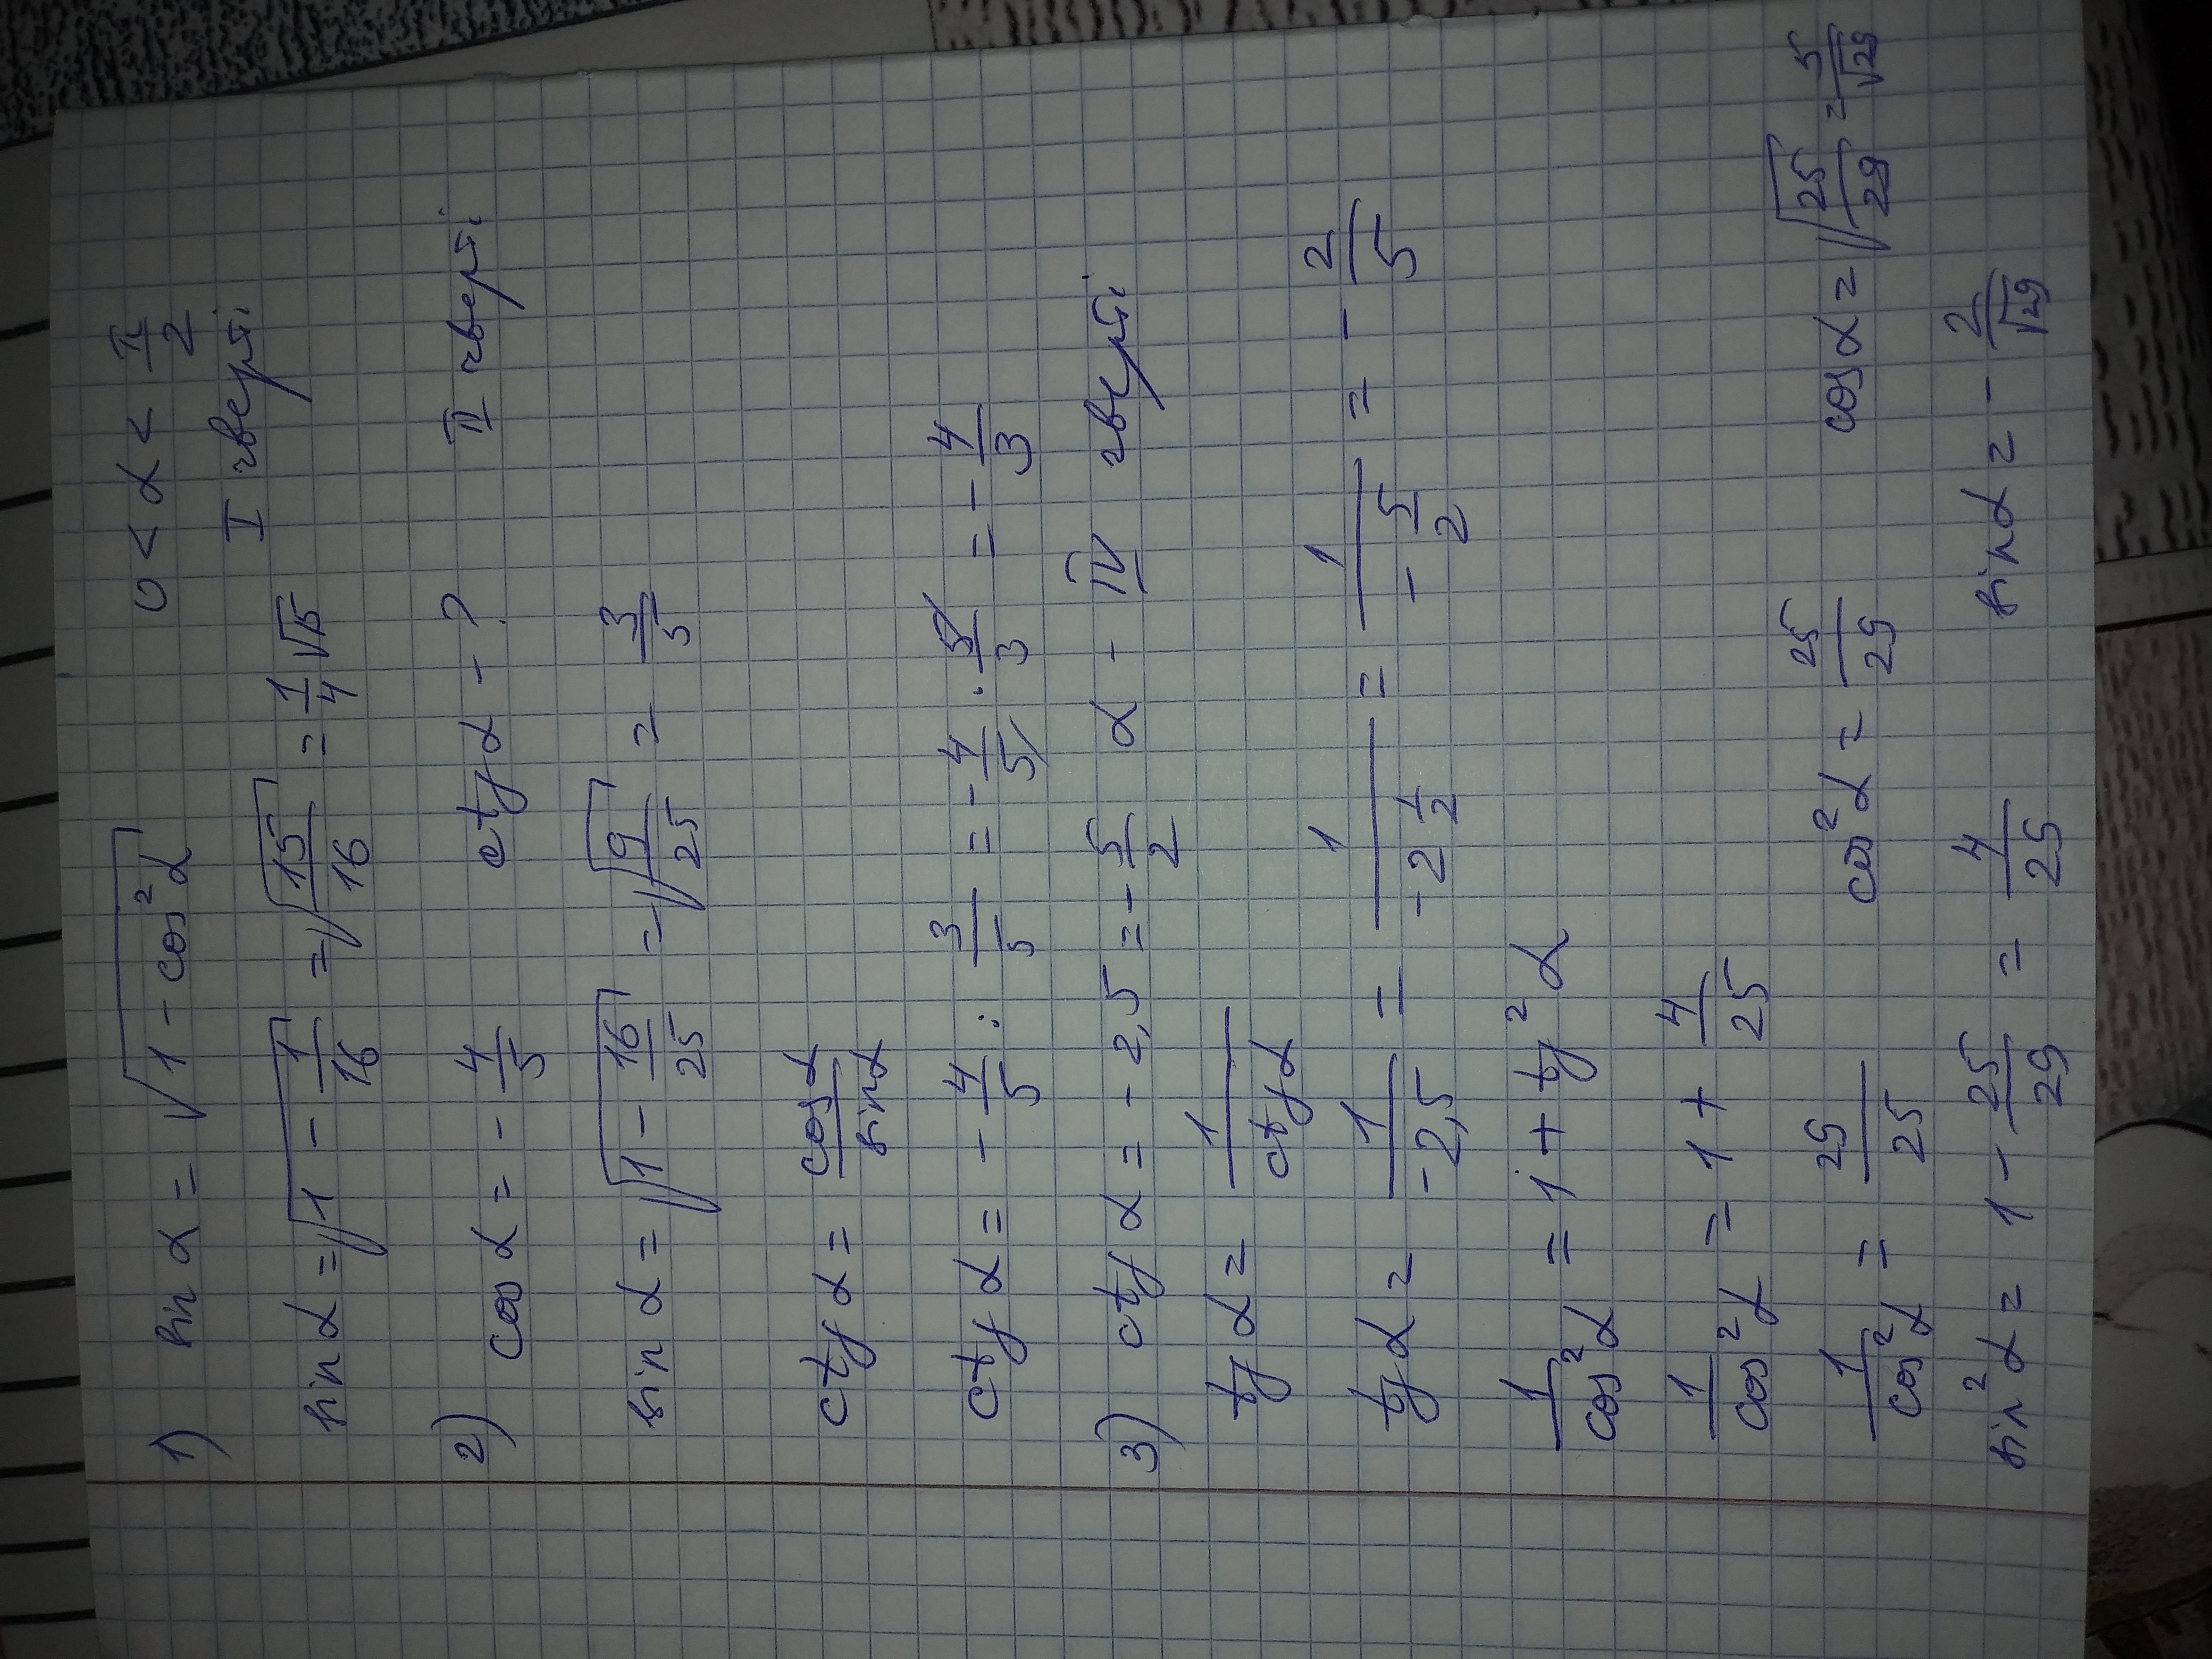 1) sin α = √(1 - cos²α) 0 < α < π/2
I чверті
sin α = √(1 - 1/16) = √(15/16) = 1/4 √15
2) cos α = - 4/5 ctg α - ? II чверті
sin α = √(1 - 16/25) = √(9/25) = 3/5
ctg α = cos α/sin α
ctg α = - 4/5 : 3/5 = - 4/5 · 5/3 = - 4/3
3) ctg α = - 2,5 = - 5/2 α - IV чверті
tg α = 1/ctg α
tg α = 1/-2,5 = 1/-2 1/2 = 1/-5/2 = - 2/5
1/cos²α = 1 + tg²α
1/cos²α = 1 + 4/25
1/cos²α = 29/25 cos²α = 25/29 cos α = √(25/29) = 5/√29
sin²α = 1 - 25/29 = 4/25 sin α = - 2/√29